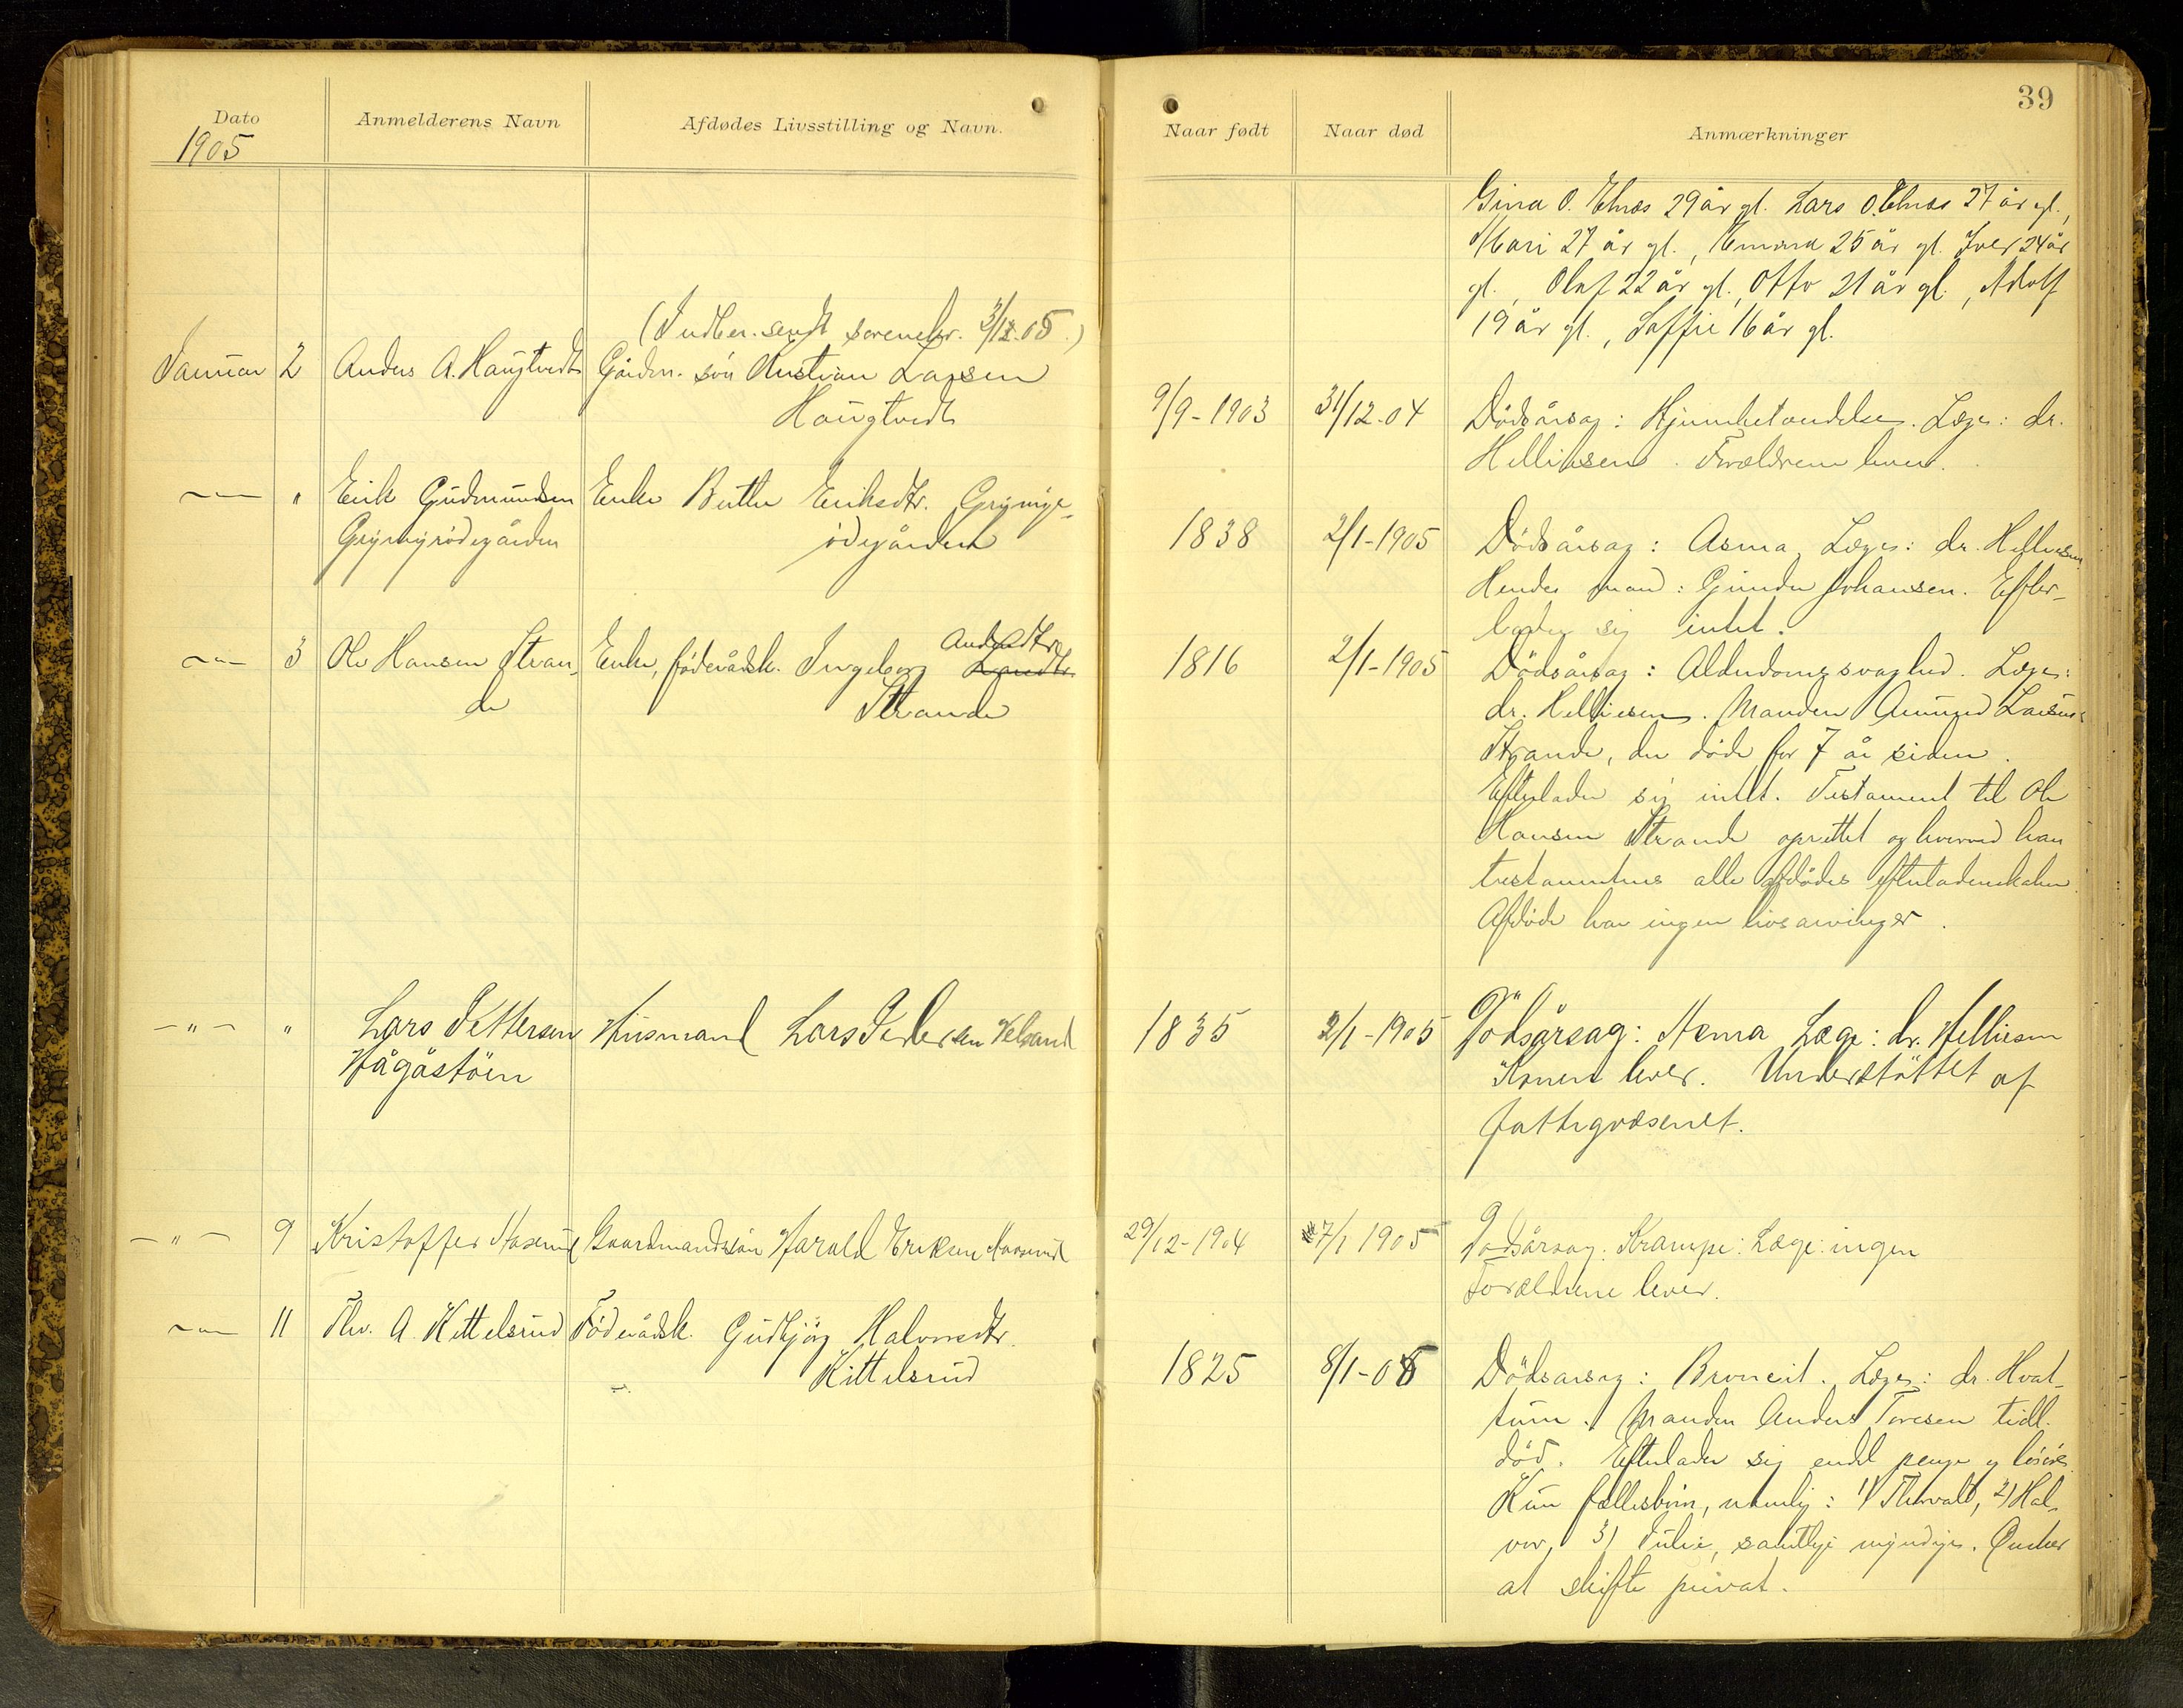 39
Dato
Anmelderens Navn
Afdødes Livsstilling og Navn.
Naar født
Naar død
Anmærkninger
1905
Gina O. Elnæs 29 år gl. Lars O. Elnæs 27 år gl.,
Mari 27 år gl., Emma 25 år gl. Iver 24 år
gl., Olaf 22 år gl., Otto 21 år gl., Adolf
19 år gl., Soffie 16 år gl.
(Indber. sendt sorenskr. 3/12.05.)
Januar 2 Anders A. Haugtvedt Gårdm. søn Kristian Larsen
Haugtvedt
9/9-1903 31/12-04 Dødsårsag: Hjernebetændelse. Læge: dr.
Helliesen. Forældrene lever.
-"- " Erik Gudmundsen Enke Berthe Eriksdtr. Grymyr-
Grymyrødegården ødegården
1838 2/1-1905 Dødsårsag: Asma. Læge: dr. Helliesen
Hendes mand: Gunder Johansen. Efter-
lader sig intet.
-"- 3 Ole Hansen Stran- Enke, føderådsk. Ingeborg Andersdtr.
de Strande
1816 2/1-1905 Dødsårsag: Alderdomssvaghed. Læge:
dr. Helliesen. Manden Amund Larsen
Strande, der døde for 7 år siden.
Efterlader sig intet. Testament til Ole
Hansen Strande oprettet og hvorved han
testamenteres alle afdødes efterladenskaber.
Afdøde har ingen livsarvinger.
-"- " Lars Pettersen Husmand Lars Pedersen Velsand
Hågåstøen
1835 2/1-1905 Dødsårsag: Asma Læge: dr. Helliesen
Konen lever. Understøttet af
fattigvæsenet.
-"- 9 Kristoffer Haserud Gaardmandssøn Harald Eriksen Haserud
29/12-1904 7/1 1905 Dødsårsag: Krampe: Læge: ingen
Forældrene lever.
-"- 11 Thv. A. Kittelsrud Føderådsk. Gudbjør Halvorsdtr.
Kittelsrud
1825 8/1-05 Dødsårsag: Bronkit. Læge: dr. Hvat-
tum. Manden Anders Toresen tidl.
død. Efterlader sig endel penge og løsøre
Kun fællesbørn, nemlig: 1) Thorvald, 2) Hal-
vor, 3) Julie, samtlige myndige. Ønsker
at skifte privat.